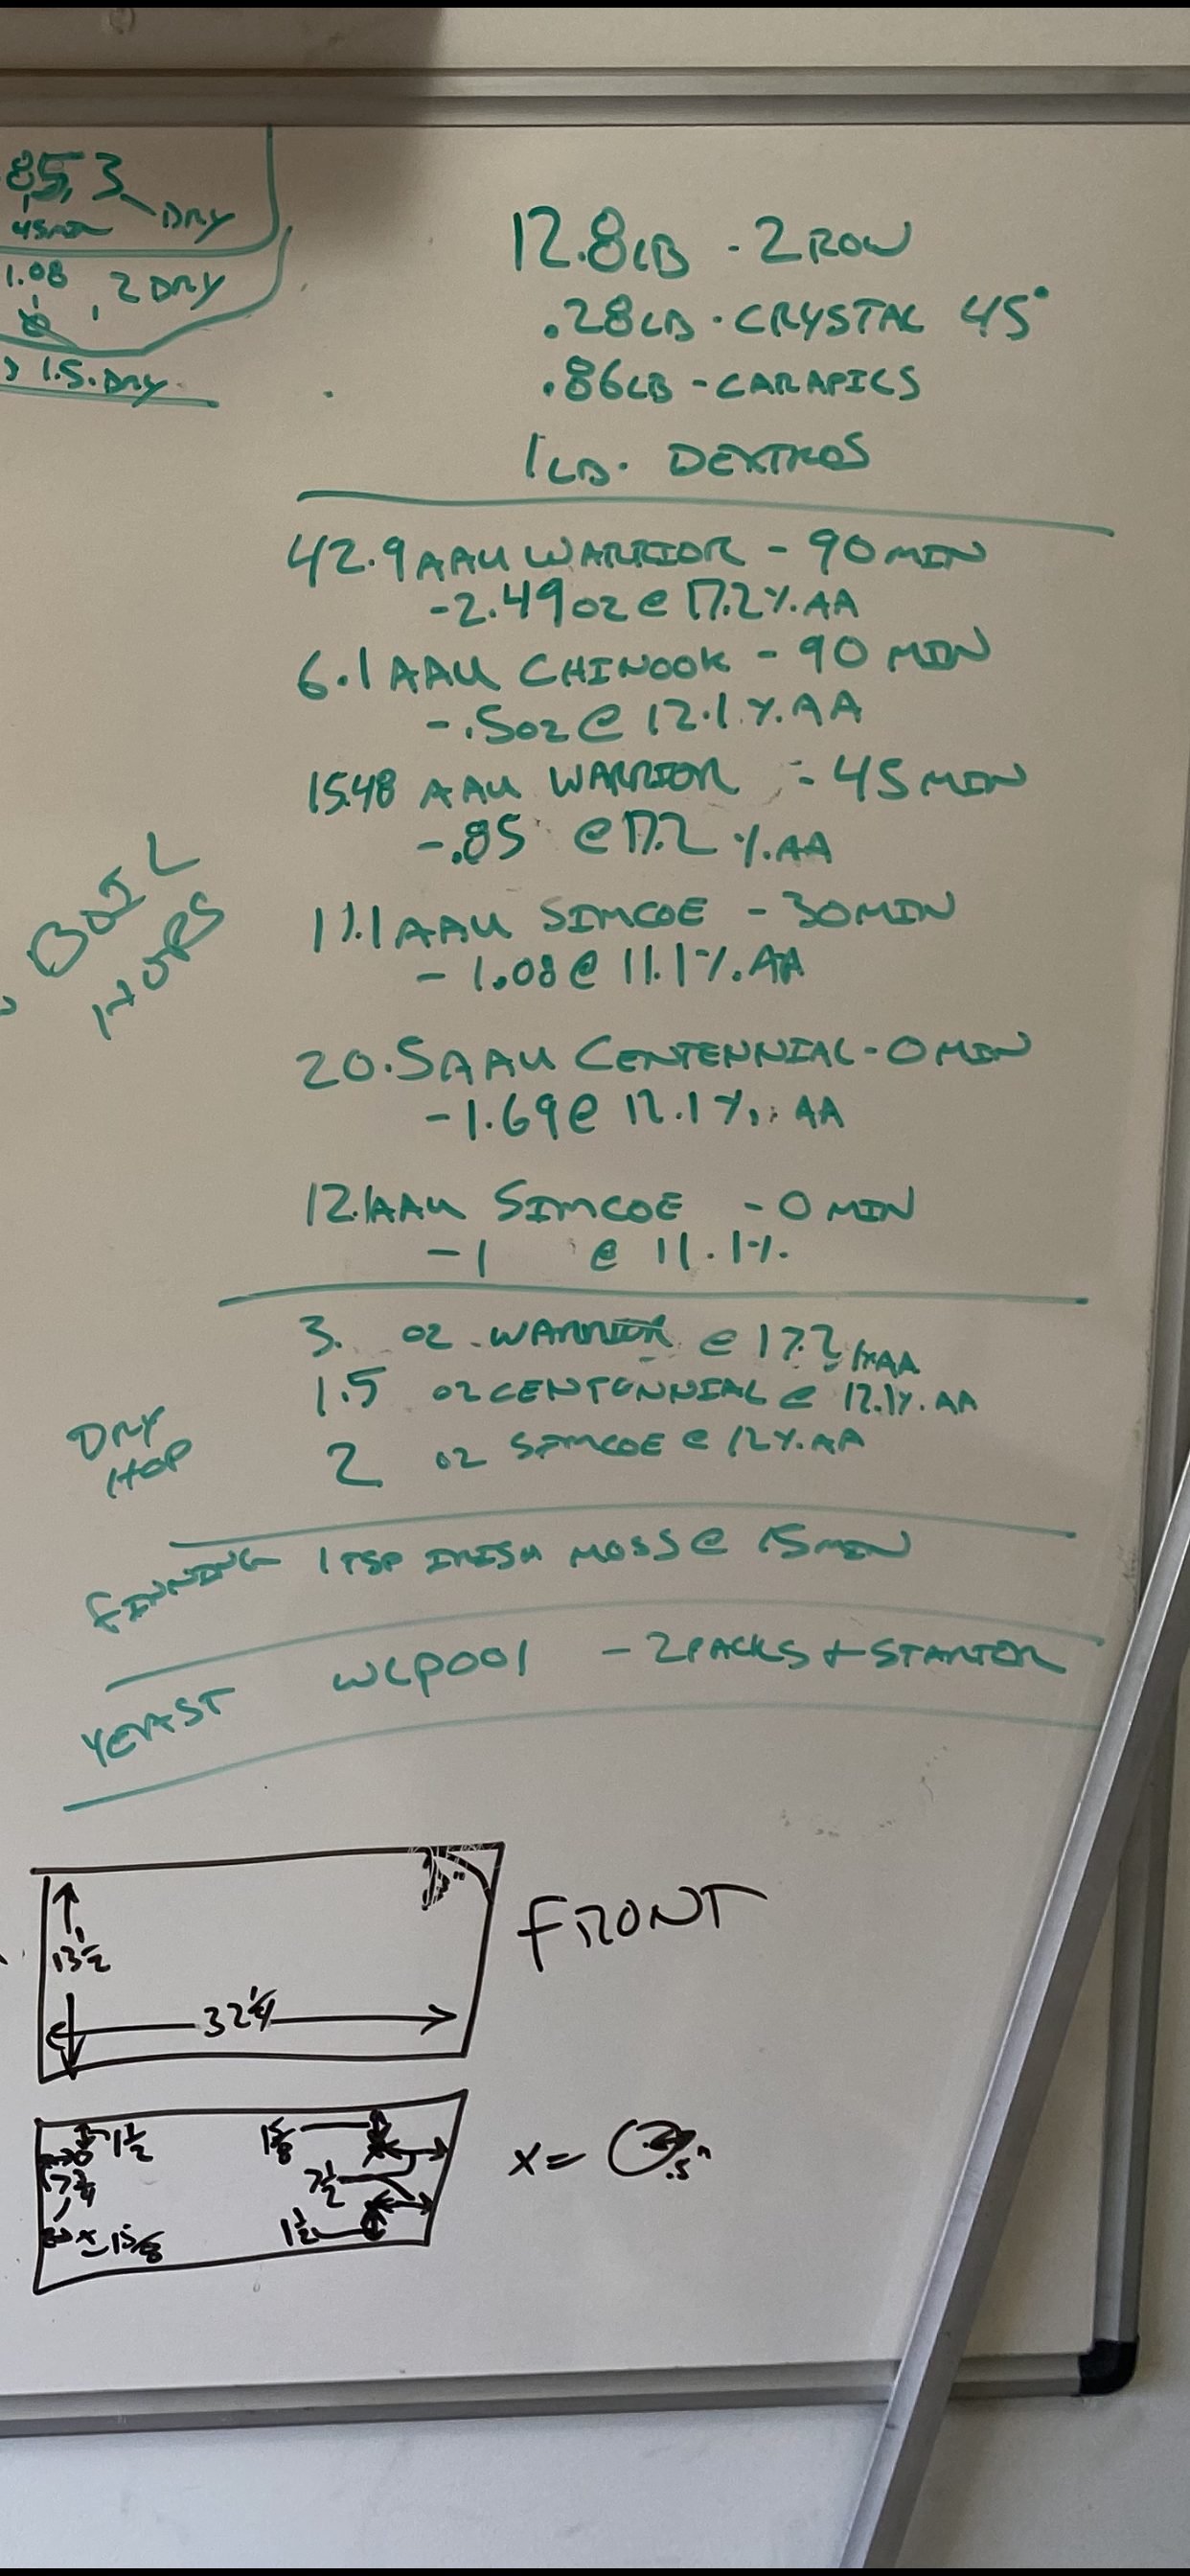 85, 3
45MIN DRY
1.08 , 2 DRY
1.5. DRY
12.8LB - 2 ROW
.28LB - CRYSTAL 45°
.86LB - CARAPILS
1 LB. DEXTROS
BOIL
HOPS
42.9 AAU WARRIOR - 90 MIN
-2.49 OZ @ 17.2%.AA
6.1 AAU CHINOOK - 90 MIN
-.5OZ @ 12.1%.AA
15.48 AAU WARRIOR - 45 MIN
-.85 @ 17.2 %.AA
11.1 AAU SIMCOE - 30MIN
- 1.08 @ 11.1%.AA
20.5 AAU CENTENNIAL - 0 MIN
-1.69 @ 12.1%. AA
12.1 AAU SIMCOE - 0 MIN
-1 @ 11.1%.
DRY
HOP
3. OZ. WARRIOR @ 17.2%AA
1.5 OZ CENTONNIAL @ 12.1%.AA
2 OZ SIMCOE @ 12%.AA
FINNING 1 TSP IRISH MOSS @ 15MIN
YEAST WLP001 - 2 PACKS + STARTER
FRONT
13 1/2
32 1/4
1 1/2
1 5/8
7 3/4
7 1/2
1 1/2
x - 1 5/8
x = .5"